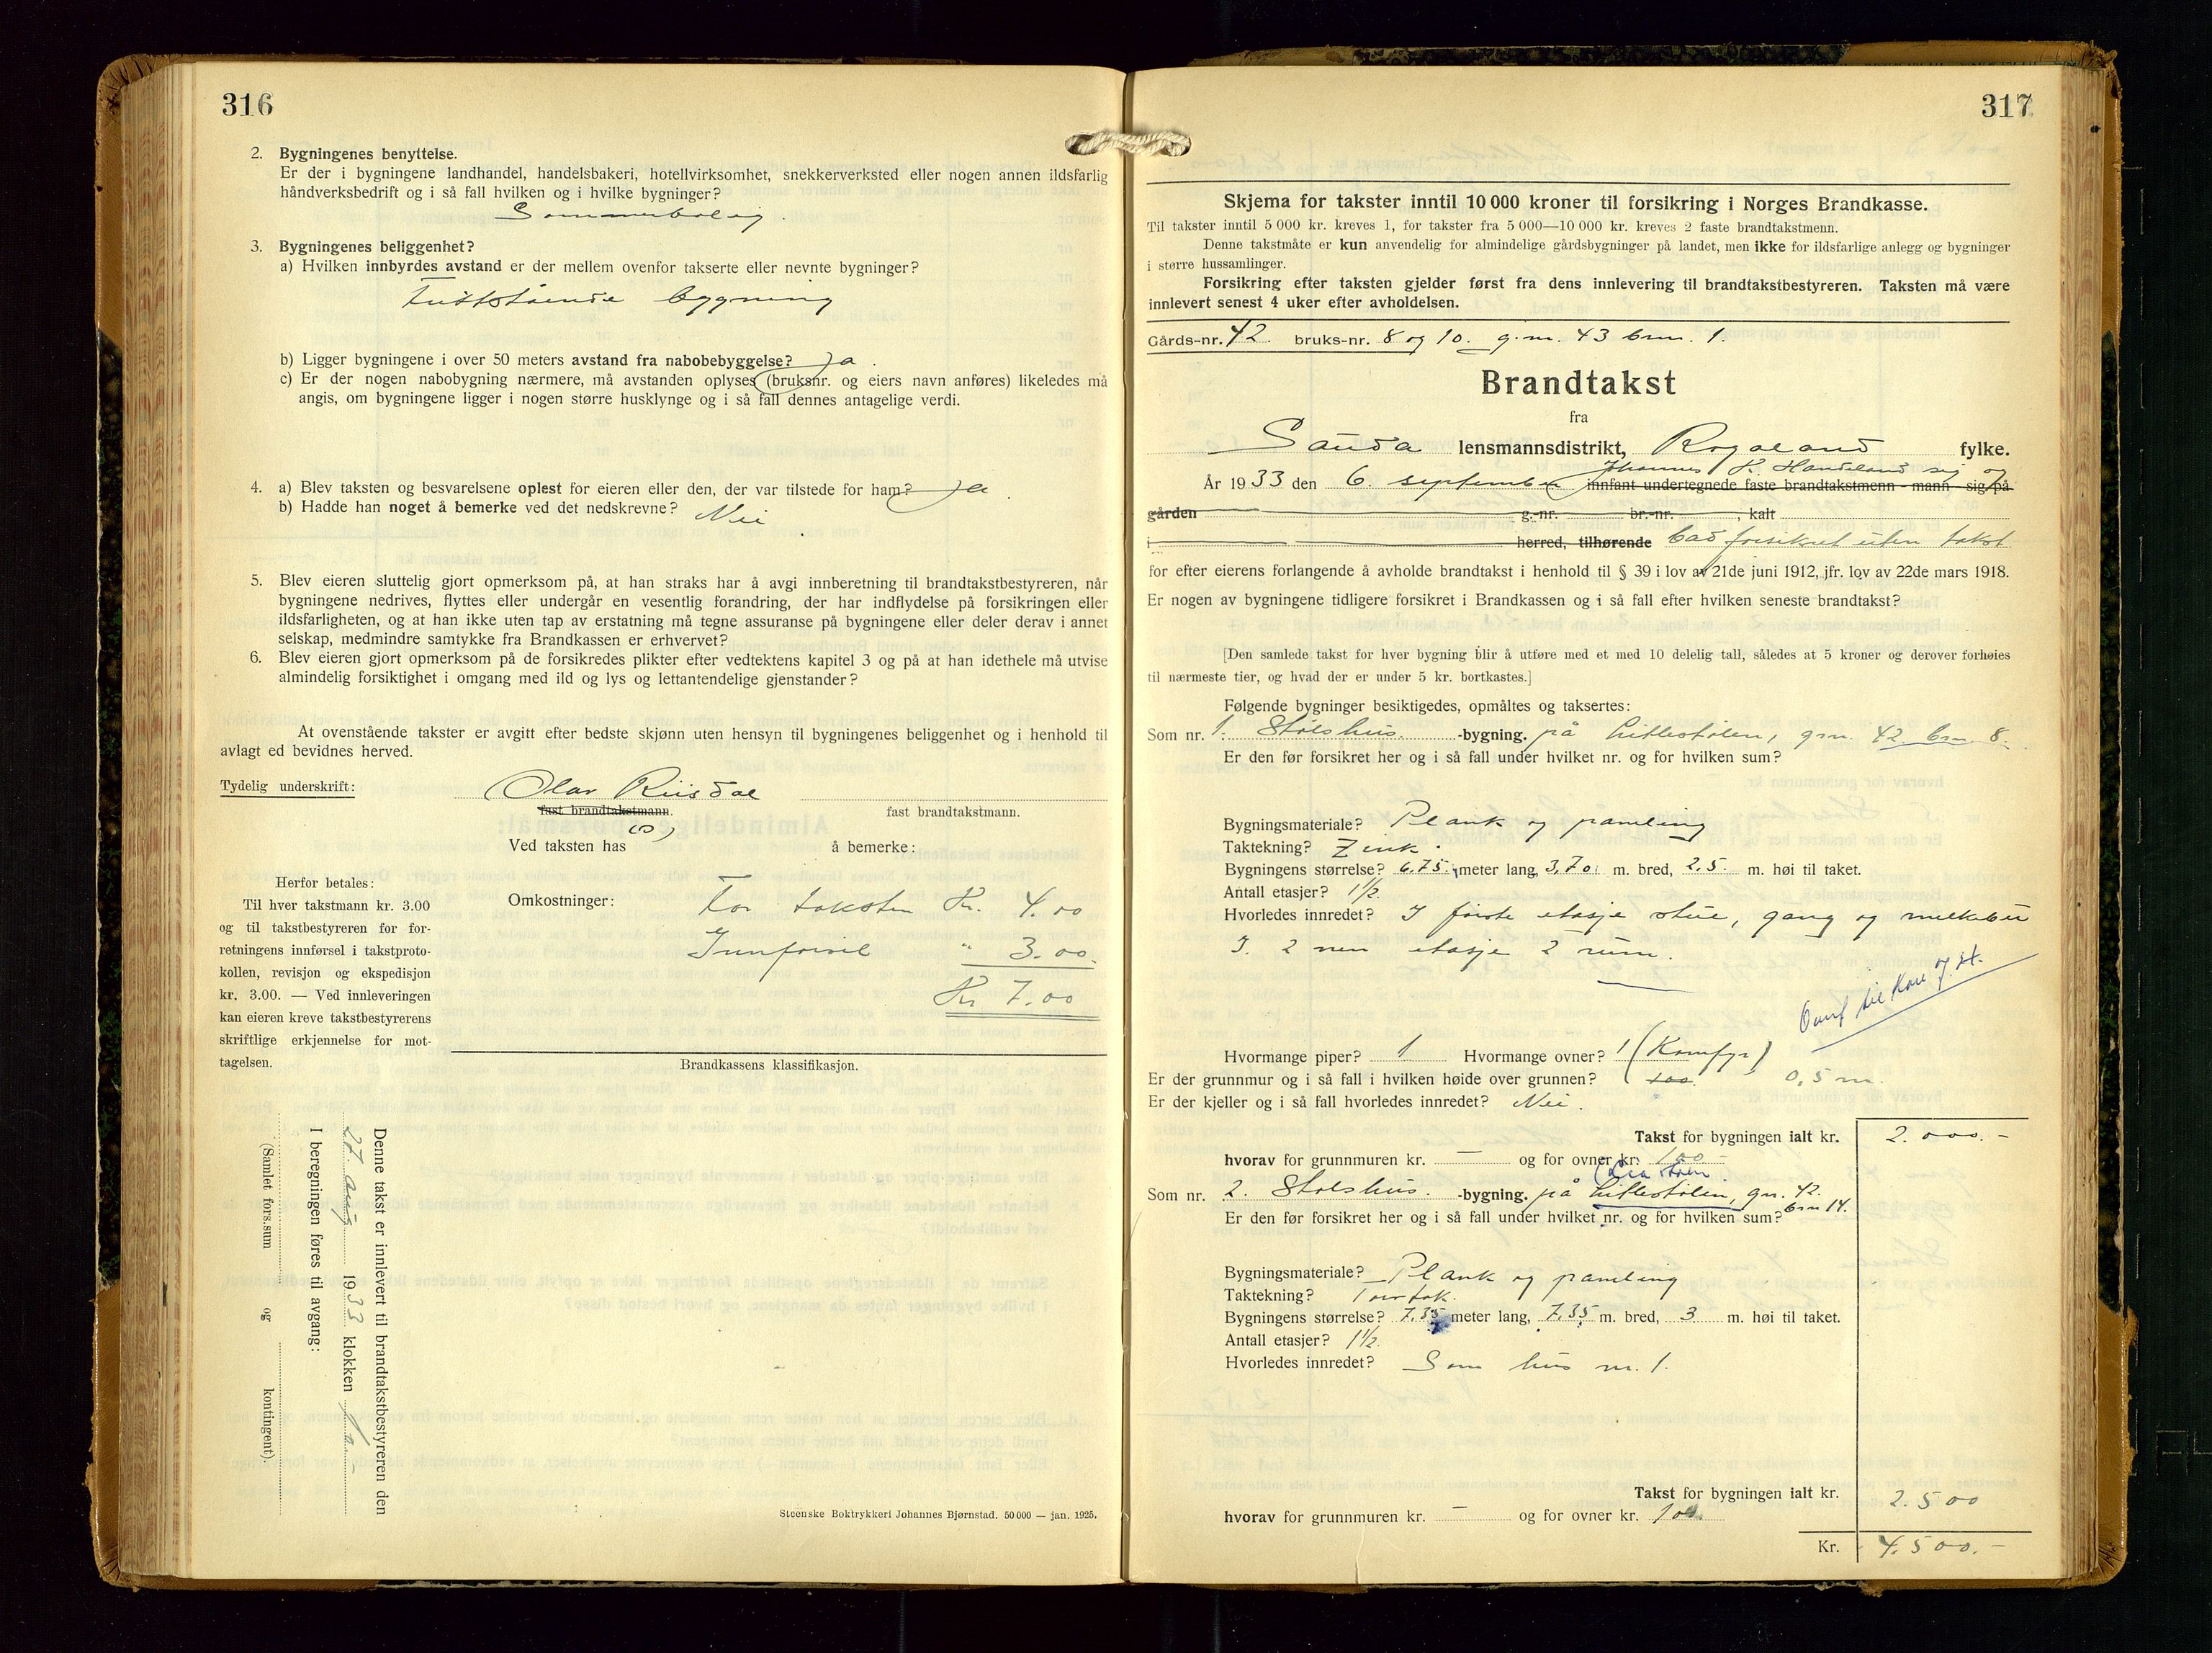 316
2. Bygningenes benyttelse.
Er der i bygningene landhandel, handelsbakeri, hotellvirksomhet, snekkerverksted eller nogen annen ildsfarlig
håndverksbedrift og i så fall hvilken og i hvilke bygninger?
Sommerbolig.
3. Bygningenes beliggenhet?
a) Hvilken innbyrdes avstand er der mellem ovenfor takserte eller nevnte bygninger?
Frittstående bygning
b) Ligger bygningene i over 50 meters avstand fra nabobebyggelse? Ja.
c) Er der nogen nabobygning nærmere, må avstanden oplyses (bruksnr. og eiers navn anføres) likeledes må
angis, om bygningene ligger i nogen større husklynge og i så fall dennes antagelige verdi.
4. a) Blev taksten og besvarelsene oplest for eieren eller den, der var tilstede for ham? Ja.
b) Hadde han noget å bemerke ved det nedskrevne? Nei
5. Blev eieren sluttelig gjort opmerksom på, at han straks har å avgi innberetning til brandtakstbestyreren, når
bygningene nedrives, flyttes eller undergår en vesentlig forandring, der har indflydelse på forsikringen eller
ildsfarligheten, og at han ikke uten tap av erstatning må tegne assuranse på bygningene eller deler derav i annet
selskap, medmindre samtykke fra Brandkassen er erhvervet?
6. Blev eieren gjort opmerksom på de forsikredes plikter efter vedtektens kapitel 3 og på at han idethele må utvise
almindelig forsiktighet i omgang med ild og lys og lettantendelige gjenstander?
At ovenstående takster er avgitt efter bedste skjønn uten hensyn til bygningenes beliggenhet og i henhold til
avlagt ed bevidnes herved.
Tydelig underskrift: Olav Riisdal
fast brandtakstmann. fast brandtakstmann.
(s)
Ved taksten has å bemerke:
Herfor betales:
Til hver takstmann kr. 3.00
og til takstbestyreren for for-
retningens innførsel i takstproto-
kollen, revisjon og ekspedisjon
kr. 3.00. — Ved innleveringen
kan eieren kreve takstbestyrerens
skriftlige erkjennelse for mot-
tagelsen.
Omkostninger: For taksten Kr. 4.00
Innførsel " 3.00.
Kr 7.00
Brandkassens klassifikasjon.
Denne takst er innlevert til brandtakstbestyreren den
27. aug 1933 klokken
I beregningen føres til avgang:
(Samlet fors.sum og kontingent).
Steenske Boktrykkeri Johannes Bjørnstad. 50 000 — jan. 1925.
317
Skjema for takster inntil 10 000 kroner til forsikring i Norges Brandkasse.
Til takster inntil 5 000 kr. kreves 1, for takster fra 5 000—10 000 kr. kreves 2 faste brandtakstmenn.
Denne takstmåte er kun anvendelig for almindelige gårdsbygninger på landet, men ikke for ildsfarlige anlegg og bygninger
i større hussamlinger.
Forsikring efter taksten gjelder først fra dens innlevering til brandtakstbestyreren. Taksten må være
innlevert senest 4 uker efter avholdelsen.
Gårds-nr. 42. bruks-nr. 8 og 10. g.nr. 43 bnr. 1.
Brandtakst
fra
Sauda lensmannsdistrikt, Rogaland fylke.
Johannes K. Handeland sig og
År 1933 den 6. september innfant undertegnede faste brandtakstmenn - mann - sig på
gården g.-nr. br.-nr. , kalt
i herred, tilhørende bad forsikret uten takst
for efter eierens forlangende å avholde brandtakst i henhold til § 39 i lov av 21de juni 1912, jfr. lov av 22de mars 1918.
Er nogen av bygningene tidligere forsikret i Brandkassen og i så fall efter hvilken seneste brandtakst?
[Den samlede takst for hver bygning blir å utføre med et med 10 delelig tall, således at 5 kroner og derover forhøies
til nærmeste tier, og hvad der er under 5 kr. bortkastes.]
Følgende bygninger besiktigedes, opmåltes og taksertes:
Som nr. 1. Stølshus. -bygning. på Litlestølen, gnr. 42. bnr. 8.
Er den før forsikret her og i så fall under hvilket nr. og for hvilken sum?
Bygningsmateriale? Plank og paneling
Taktekning? Zink.
Bygningens størrelse? 6,75. meter lang, 3,70. m. bred, 2,5. m. høi til taket.
Antall etasjer? 1½.
Hvorledes innredet? I første etasje stue, gang og melkebu
I. 2 nen etasje 2 rum.
Overf til
Hvormange piper? 1 Hvormange ovner? 1 (Komfyr)
Er der grunnmur og i så fall i hvilken høide over grunnen? 0,5 m.
Er der kjeller og i så fall hvorledes innredet? Nei.
Takst for bygningen ialt kr. 2.000.-
hvorav for grunnmuren kr. — og for ovner kr. 100 -
Som nr. 2. Stølshus. -bygning. på Litlestølen, gnr. 42. bnr 14.
Er den før forsikret her og i så fall under hvilket nr. og for hvilken sum?
Bygningsmateriale? Plank og paneling
Taktekning? Torvtak.
Bygningens størrelse? 7,35 meter lang, 7,35 m. bred, 3 m. høi til taket.
Antall etasjer? 1½.
Hvorledes innredet? Som hus nr. 1.
Takst for bygningen ialt kr. 2.500
hvorav for grunnmuren kr. — og for ovner kr. 100.
Kr. 4.500.-